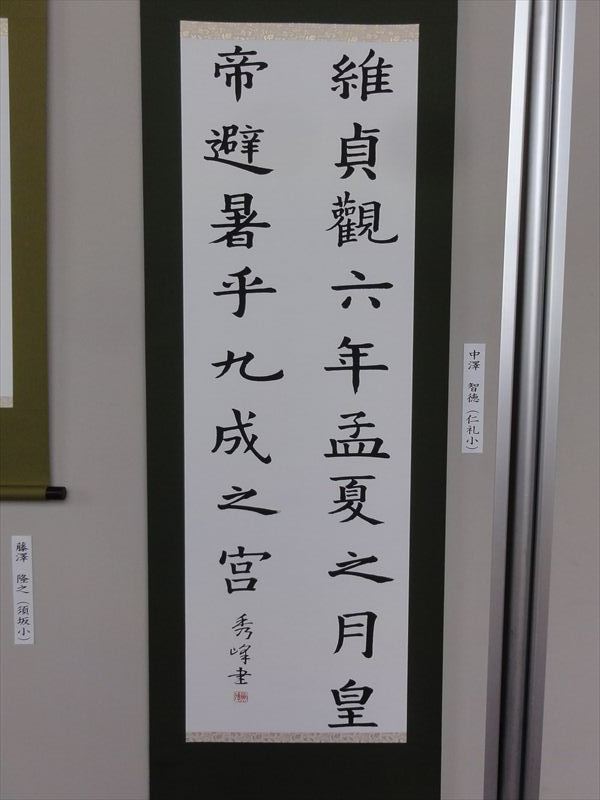 維貞觀六年孟夏之月皇
帝避暑乎九成之宮
秀峰書
中澤 智徳（仁礼小）
藤澤 隆之（須坂小）